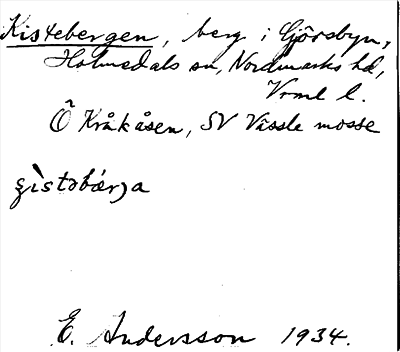 Kistebergen, berg i Gjörsbyn,
Holmedals sn, Nordmarks hd,
Vrml l.
Ö Kråkåsen, SV Vassle mosse
E. Andersson 1934.